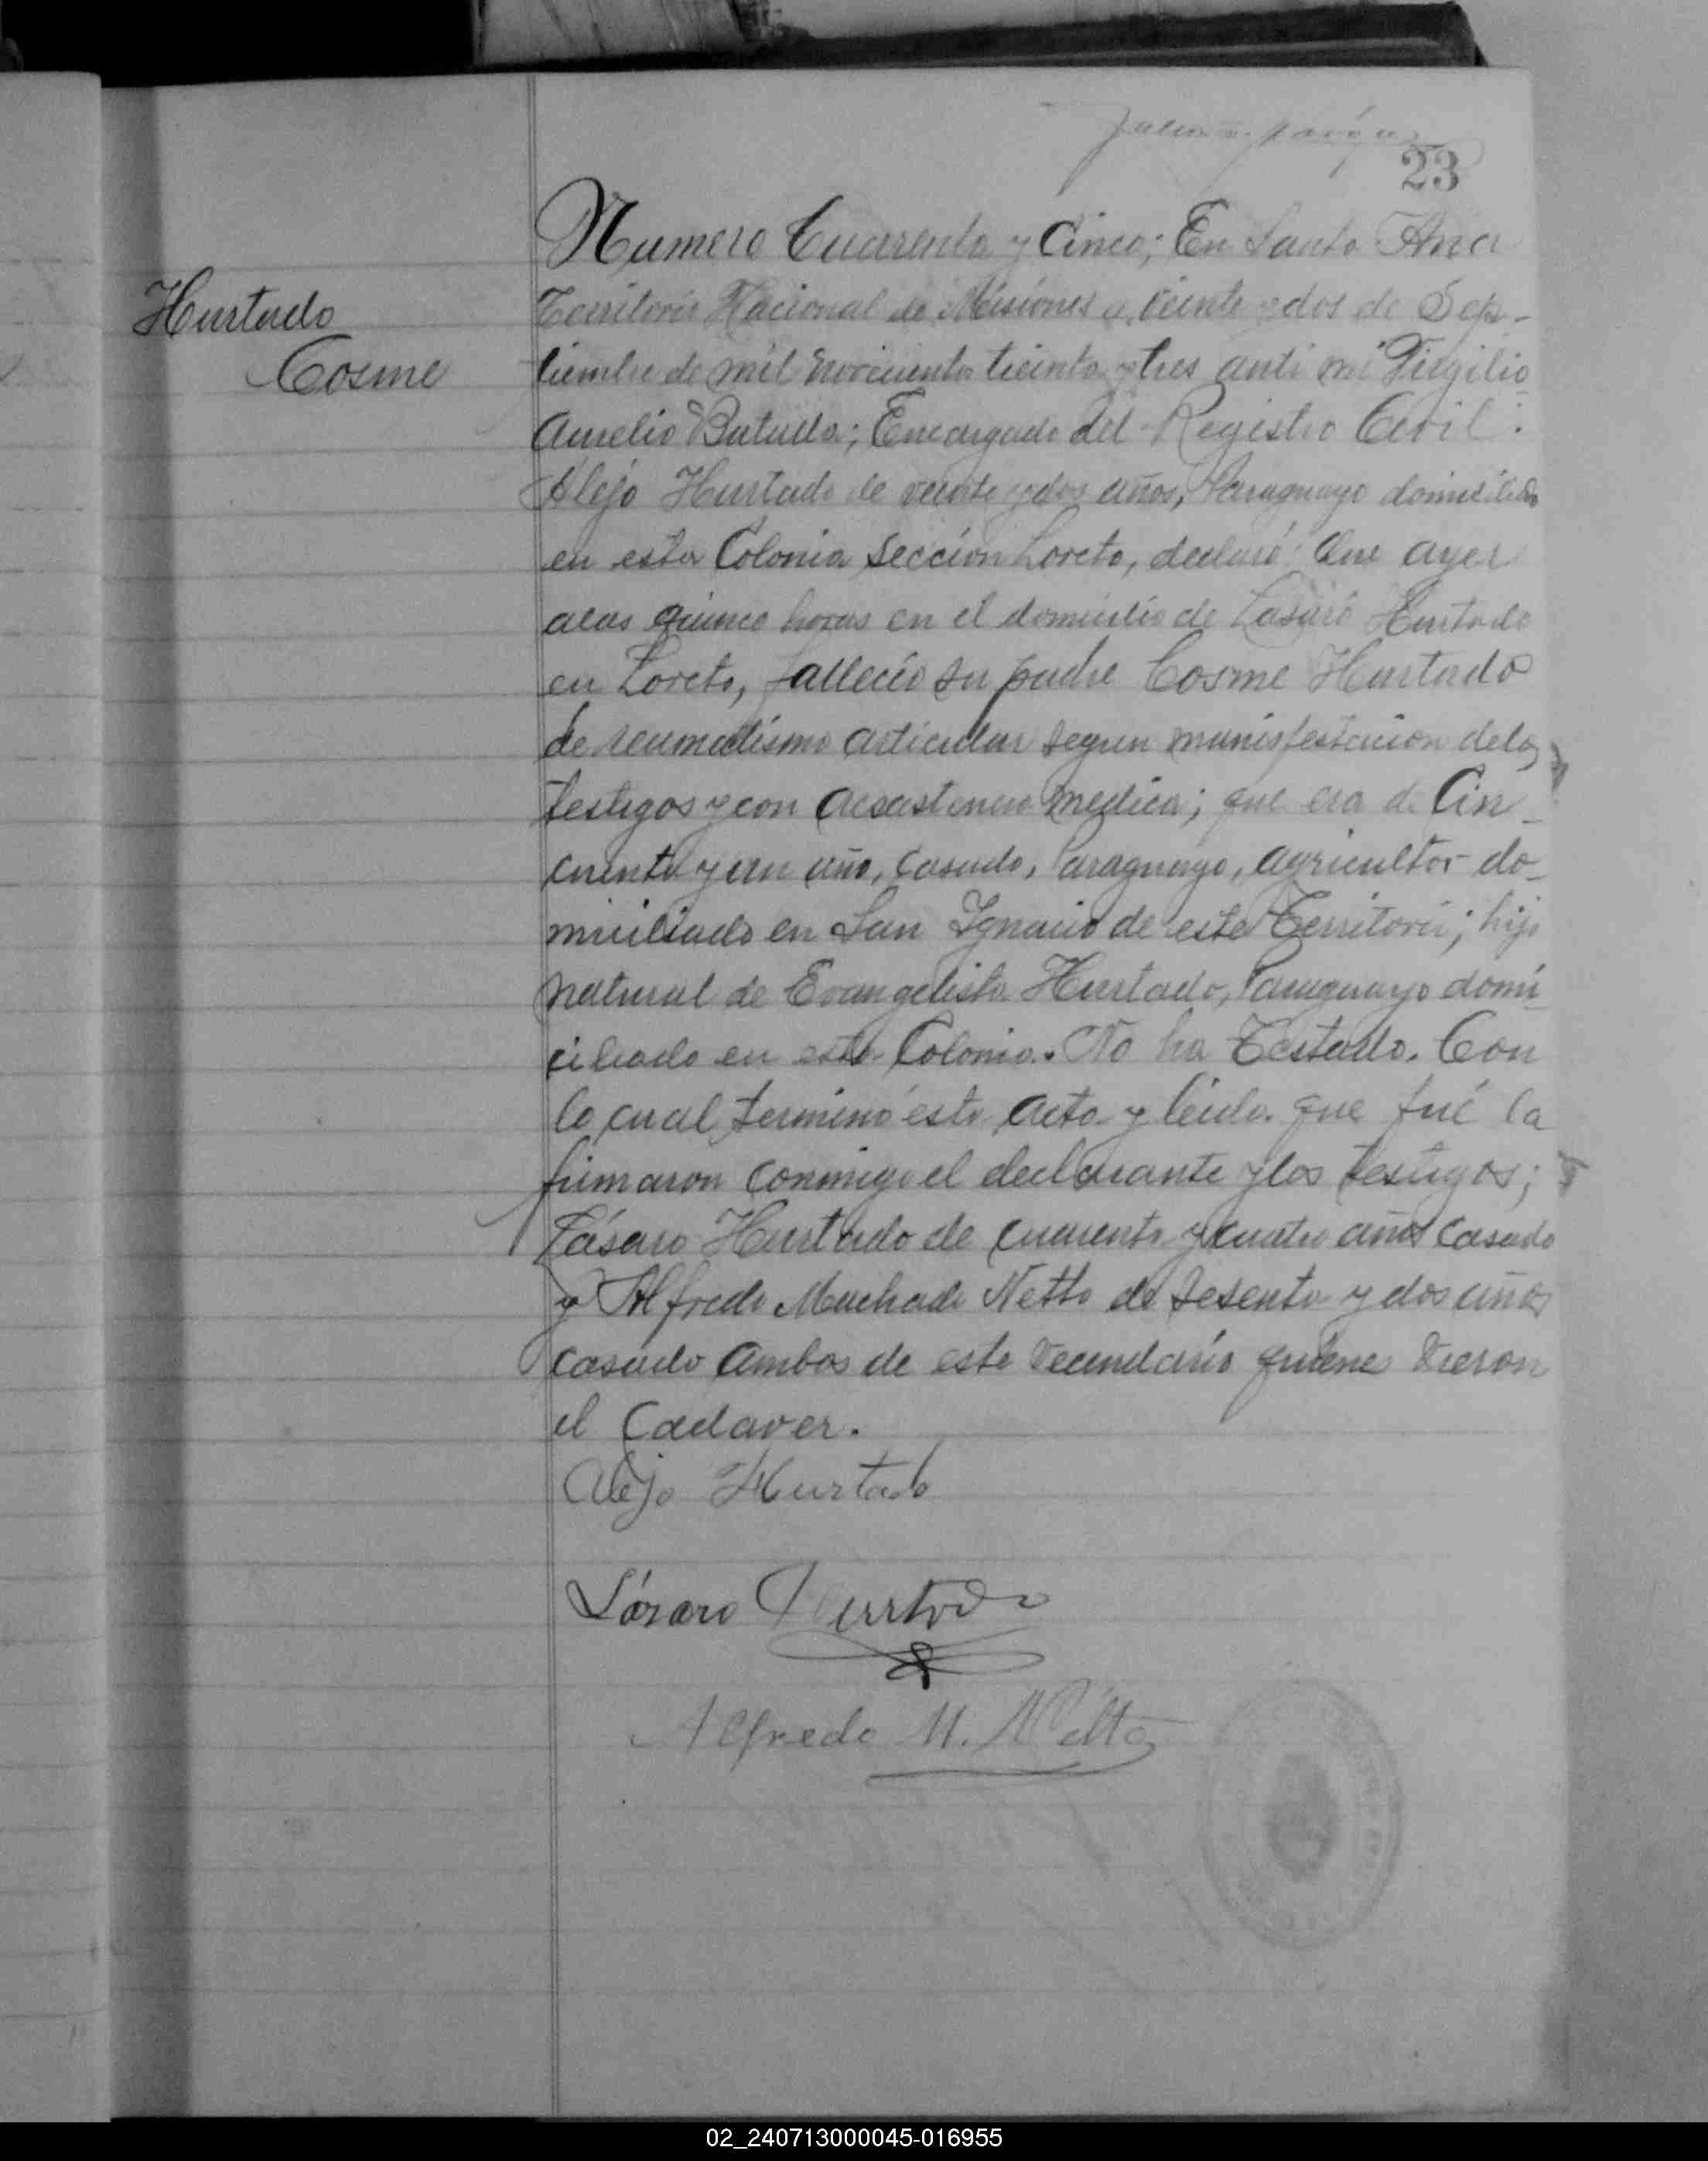 23
Numero Cuarenta y Cinco; En Santa Ana
Hurtado
Cosme
Territorio Nacional de Misiones a veinte y dos de Sep-
tiembre de mil novecientos treinta y tres ante mi Virgilio
Aurelio; Encargado del Registro Civil:
Alejo Hurtado de veinte y dos años, Paraguayo domiciliado
en esta Colonia Sección Loreto, declaró: Que ayer
a las quince horas en el domicilio de Lasaro Hurtado
en Loreto, fallecio su padre Cosme Hurtado
de reumatismo articular segun manisfestacion delos
testigos y con medica; que era de Cin-
cuenta y un año, casado, Paraguayo, agricultor do-
miciliado en San Ignacio de este Territorio; hijo
natural de Evangelista Hurtado, Paraguayo domi-
ciliado en esta Colonia. No ha Testado. Con
lo cual terminó esta acta y leida que fué la
firmaron conmigo el declarante y los testigos;
Lásaro Hurtado de cuarenta y cuatro años casado
y Alfredo Machado Netto de sesenta y dos años
casado ambos de este vecindario quienes vieron
el Cadaver.
Alejo Hurtado
Lázaro Hurtado
Alfredo M. Netto
02_240713000045-016955